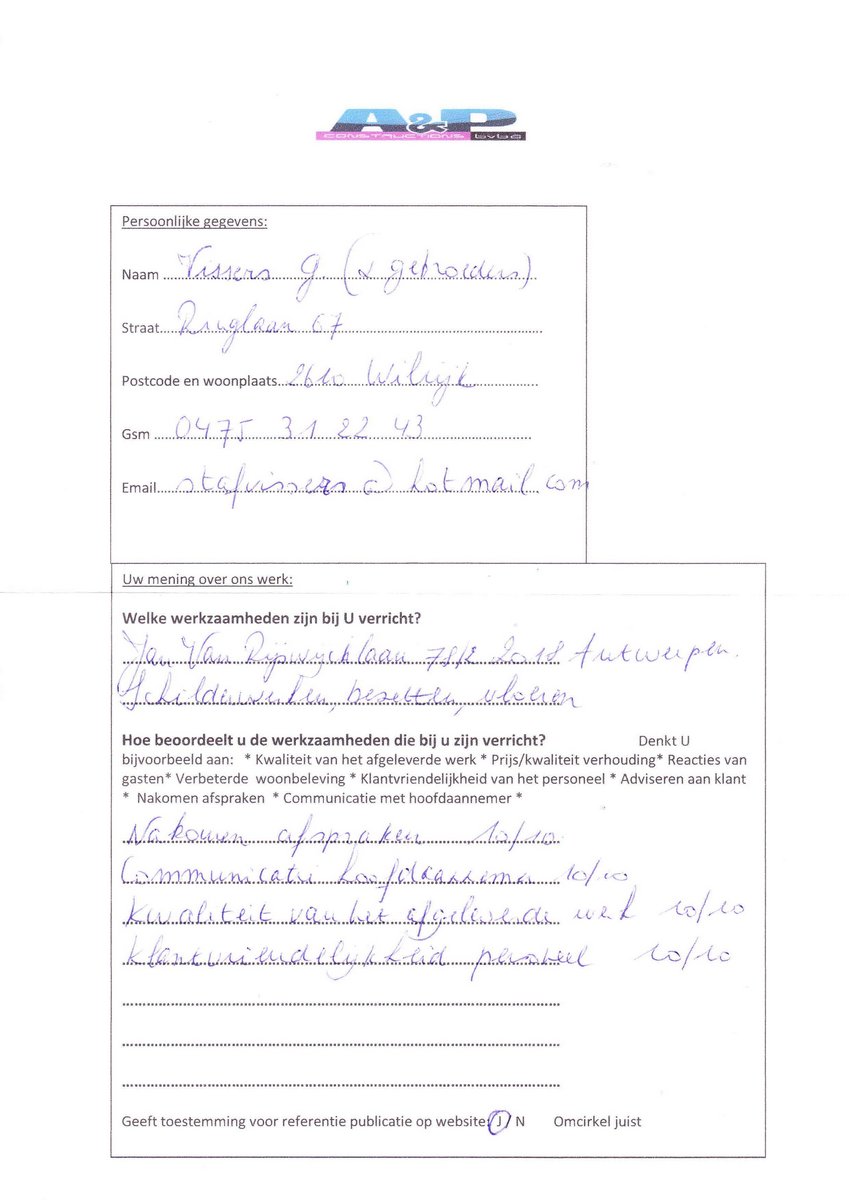 A&P
CONSTRUCTIONS bvba
Persoonlijke gegevens:
Naam Vissers G (& gebroeders)
Straat Ringlaan 67
Postcode en woonplaats 2610 Wilrijk
Gsm 0475 31 22 43
Email stafvissers@hotmail.com
Uw mening over ons werk:
Welke werkzaamheden zijn bij U verricht?
Jan Van Rijswijcklaan 78/2 2018 Antwerpen.
Schilderwerken, bezetten, vloeren
Hoe beoordeelt u de werkzaamheden die bij u zijn verricht? Denkt U
bijvoorbeeld aan: * Kwaliteit van het afgeleverde werk * Prijs/kwaliteit verhouding* Reacties van
gasten* Verbeterde woonbeleving * Klantvriendelijkheid van het personeel * Adviseren aan klant
* Nakomen afspraken * Communicatie met hoofdaannemer *
Nakomen afspraken 10/10
Communicatie hoofdaannemer 10/10
Kwaliteit van het afgeleverde werk 10/10
Klantvriendelijkheid personeel 10/10
Geeft toestemming voor referentie publicatie op website: J / N Omcirkel juist